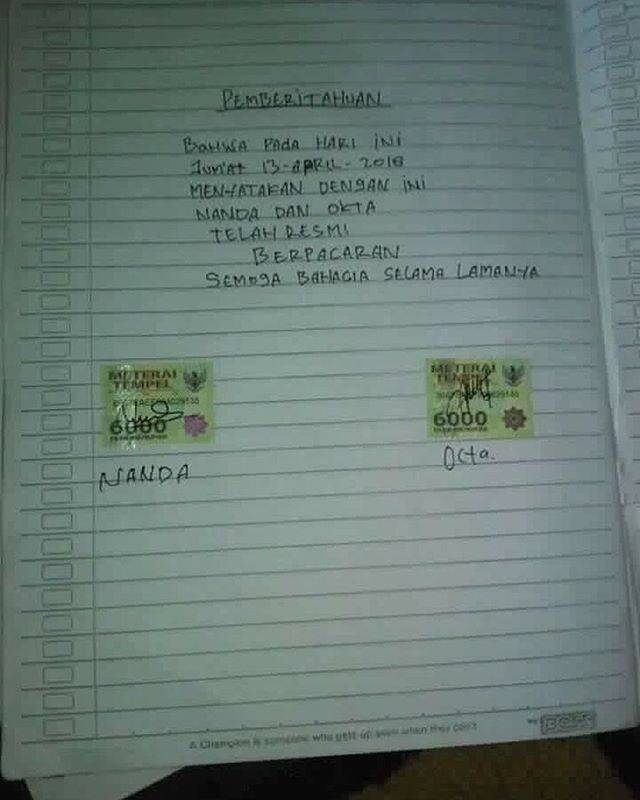 PEMBERITAHUAN
BAHWA PADA HARI INI
JUM'AT 13-APRIL-2018
MENYATAKAN DENGAN INI
NANDA DAN OKTA
TELAH RESMI
BERPACARAN
SEMOGA BAHAGIA SELAMA LAMANYA
METERAI
TEMPEL
6000
METERAI
TEMPEL
6000
NANDA
Octa.
A Champion is someone who gets up even when they can't
by BOSS